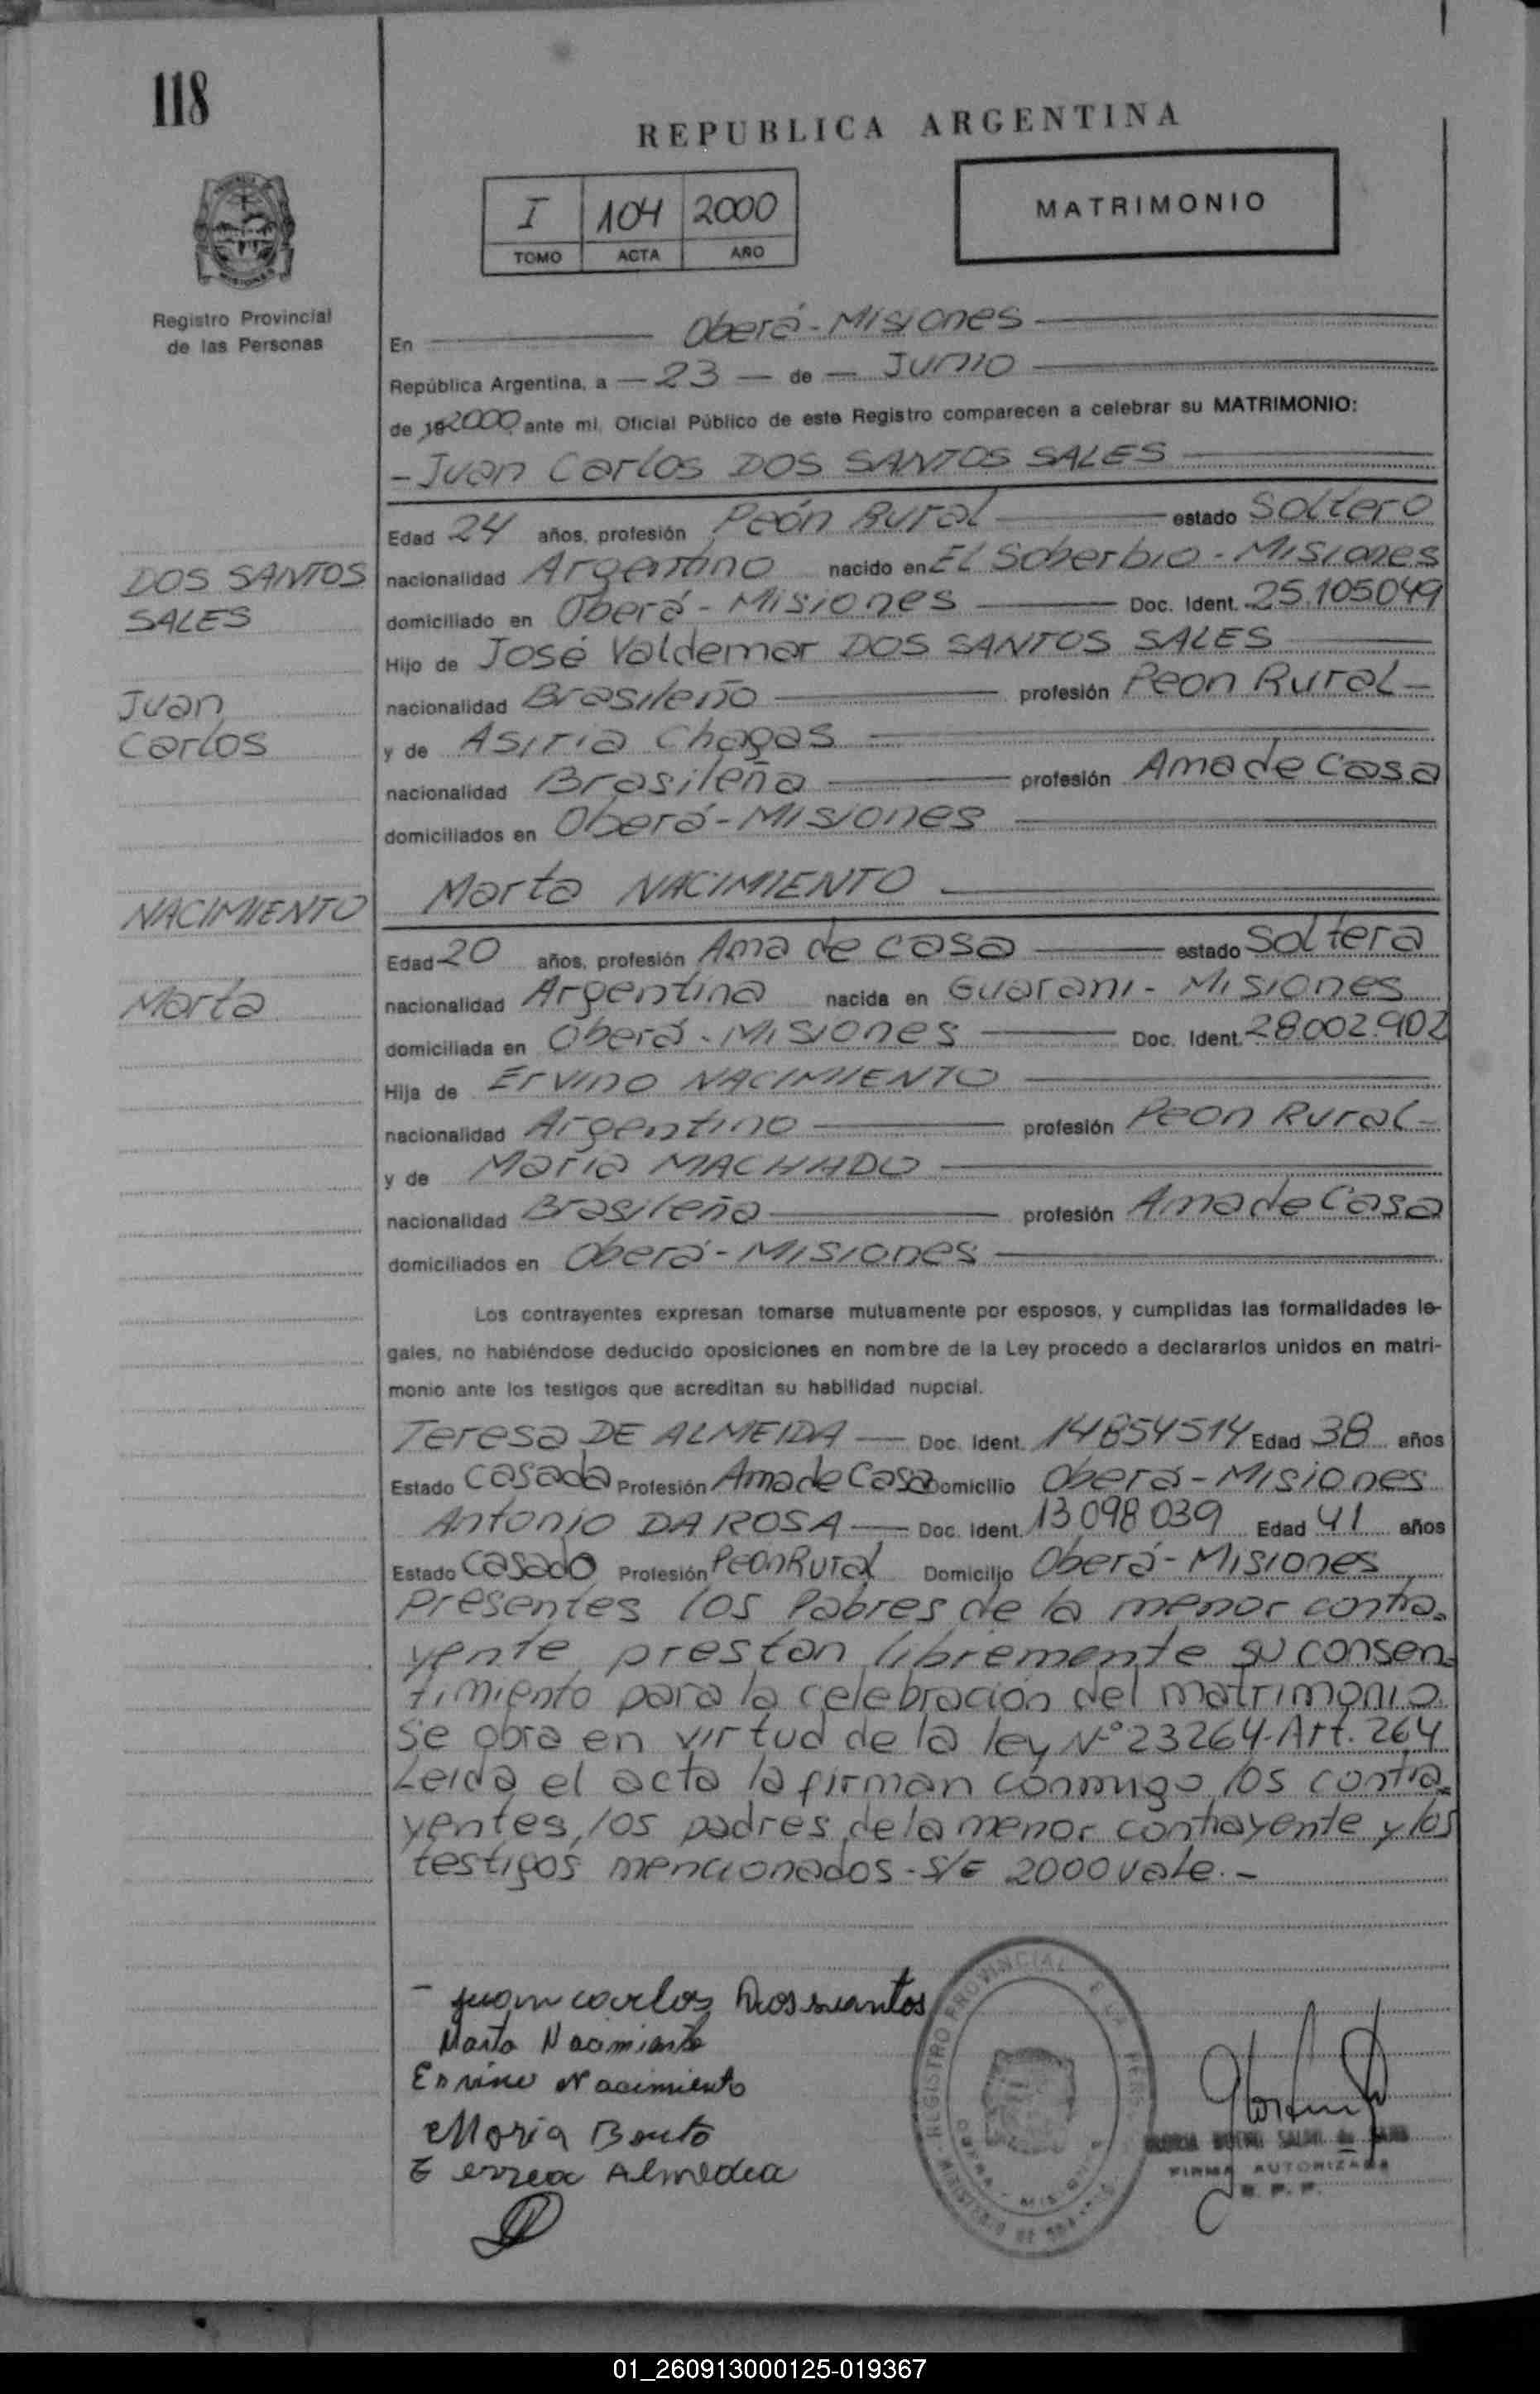 118
REPUBLICA ARGENTINA
I 104 2000
TOMO ACTA AÑO
MATRIMONIO
Registro Provincial
de las Personas
En Oberá - Misiones
República Argentina, a - 23 - de - Junio
de 19 2000 ante mi, Oficial Público de este Registro comparecen a celebrar su MATRIMONIO:
- Juan Carlos DOS SANTOS SALES
Edad 24 años, profesión Peón Rural estado Soltero
DOS SANTOS
SALES
Juan
Carlos
nacionalidad Argentino nacido en El Soberbio - Misiones
domiciliado en Oberá - Misiones Doc. Ident. 25.105.049
Hijo de José Valdemar DOS SANTOS SALES
nacionalidad Brasileño profesión Peon Rural -
y de Asiria Chagas
nacionalidad Brasileña profesión Ama de Casa
domiciliados en Oberá - Misiones
Marta NACIMIENTO
NACIMIENTO
Marta
Edad 20 años, profesión Ama de casa estado Soltera
nacionalidad Argentina nacida en Guarani - Misiones
domiciliada en Oberá - Misiones Doc. Ident. 28.002.902
Hija de Ervino NACIMIENTO
nacionalidad Argentino profesión Peon Rural -
y de Maria MACHADO
nacionalidad Brasileña profesión Ama de Casa
domiciliados en Oberá - Misiones
Los contrayentes expresan tomarse mutuamente por esposos, y cumplidas las formalidades le-
gales, no habiéndose deducido oposiciones en nombre de la Ley procedo a declararlos unidos en matri-
monio ante los testigos que acreditan su habilidad nupcial.
Teresa DE ALMEIDA - Doc. Ident. 14854514 Edad 38 años
Estado Casada Profesión Ama de Casa Domicilio Oberá - Misiones
Antonio DA ROSA - Doc. Ident. 13.098.039 Edad 41 años
Estado Casado Profesión Peon Rural Domicilio Oberá - Misiones
Presentes los Padres de la menor contra-
yente prestan libremente su consen-
timiento para la celebración del matrimonio.
Se obra en virtud de la ley Nº 23264. Art. 264
Leida el acta la firman conmigo los contra-
yentes, los padres de la menor contrayente y los
testigos mencionados - S/E 2000 vale. -
- Juan carlos Dos santos
Marta Nacimiento
Ervino Nacimiento
Maria Bento
Terrea Almedia
REGISTRO PROVINCIAL
OBERA - MISIONES
FIRMA AUTORIZADA
R. P. P.
01_260913000125-019367